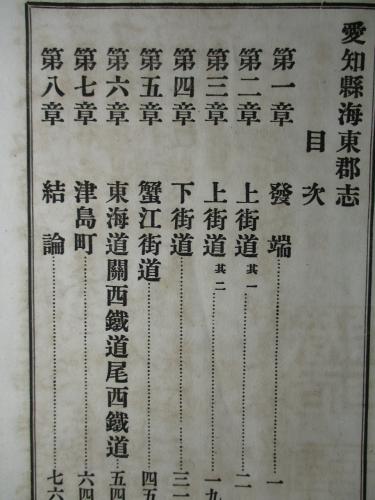 愛知縣海東郡志
目次
第一章 發端……………一
第二章 上街道 其一……………二
第三章 上街道 其二……………一九
第四章 下街道……………三一
第五章 蟹江街道……………四五
第六章 東海道關西鐵道尾西鐵道……………五四
第七章 津島町……………六四
第八章 結論……………七六